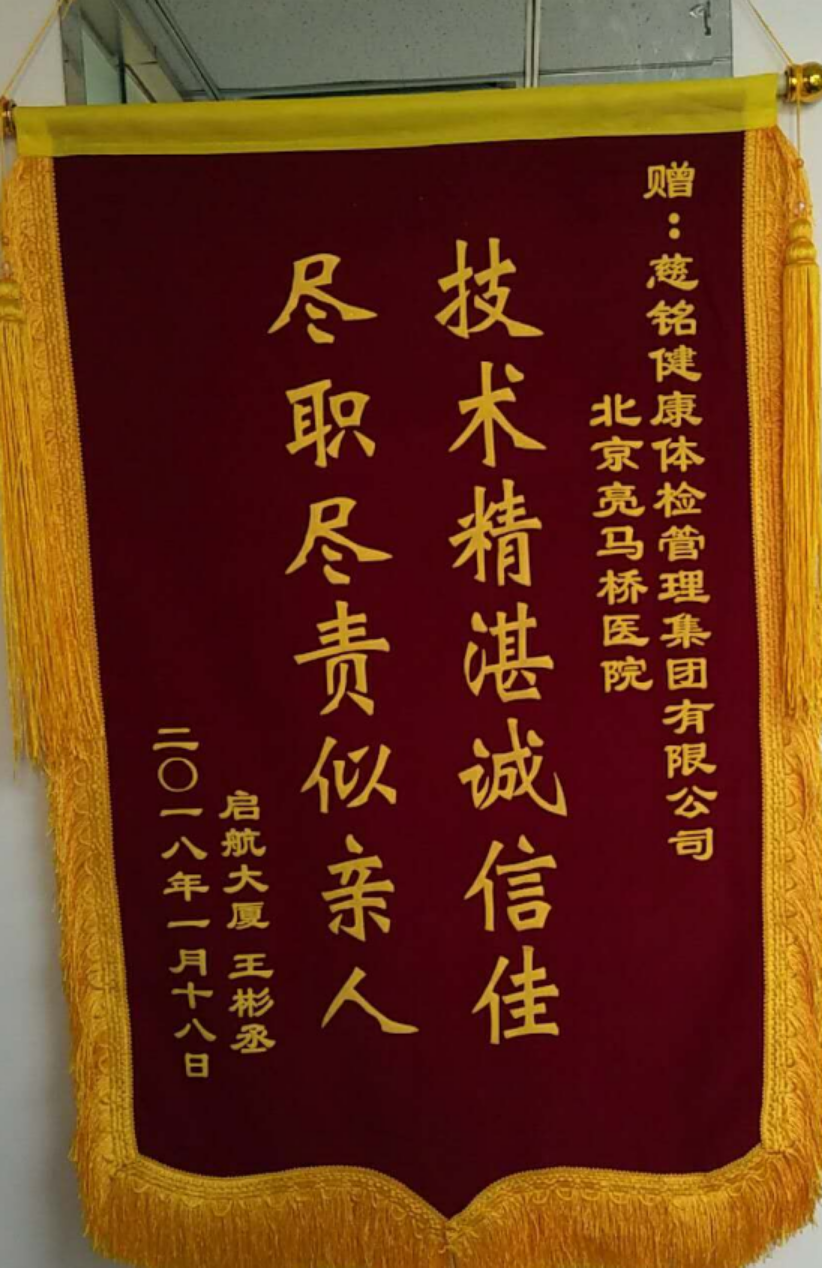 赠：慈铭健康体检管理集团有限公司
北京亮马桥医院
技术精湛诚信佳
尽职尽责似亲人
启航大厦 王彬丞
二〇一八年一月十八日